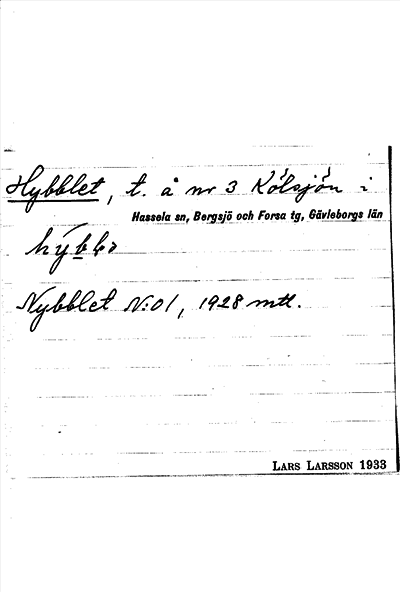 Hybblet, t. å nr 3 Kölsjön i
Hassela sn, Bergsjö och Forsa tg, Gävleborgs län
Nybblet N:o1, 1928 mtl.
LARS LARSSON 1933